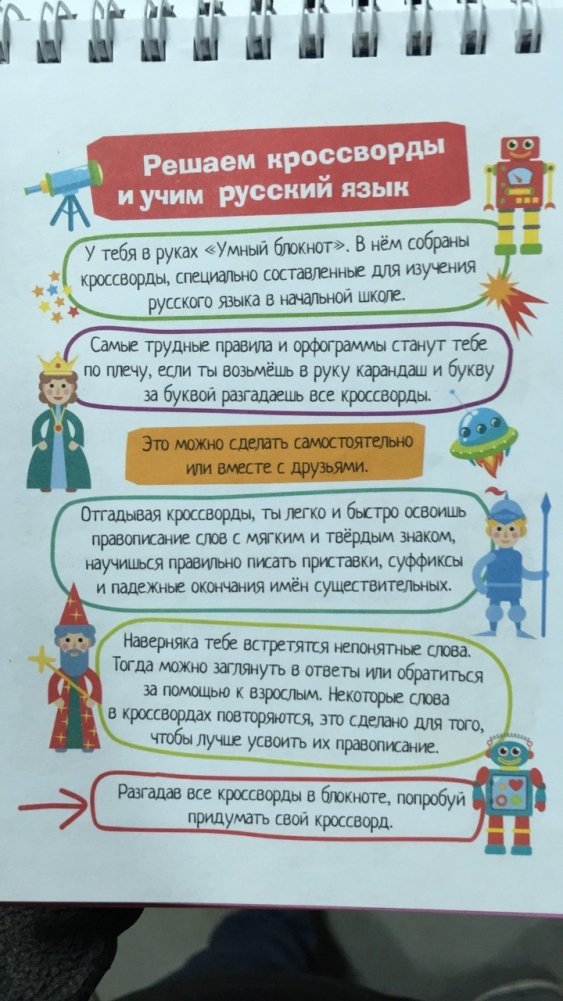 Решаем кроссворды
и учим русский язык
У тебя в руках «Умный блокнот». В нём собраны
кроссворды, специально составленные для изучения
русского языка в начальной школе.
Самые трудные правила и орфограммы станут тебе
по плечу, если ты возьмёшь в руку карандаш и букву
за буквой разгадаешь все кроссворды.
Это можно сделать самостоятельно
или вместе с друзьями.
Отгадывая кроссворды, ты легко и быстро освоишь
правописание слов с мягким и твёрдым знаком,
научишься правильно писать приставки, суффиксы
и падежные окончания имён существительных.
Наверняка тебе встретятся непонятные слова.
Тогда можно заглянуть в ответы или обратиться
за помощью к взрослым. Некоторые слова
в кроссвордах повторяются, это сделано для того,
чтобы лучше усвоить их правописание.
Разгадав все кроссворды в блокноте, попробуй
придумать свой кроссворд.